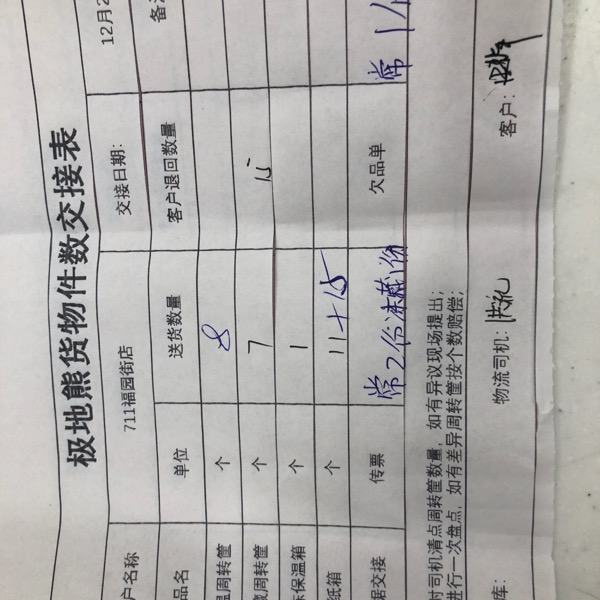 极地熊货物件数交接表
户名称 711福园街店 交接日期: 12月2
品名 单位 送货数量 客户退回数量 备注
温周转筐 个 8
藏周转筐 个 7 15
冻保温箱 个 1
纸箱 个 11+15
据交接 传票 常2份冻藏1份 欠品单 常1
对司机清点周转筐数量，如有异议现场提出；
进行一次盘点，如有差异周转筐按个数赔偿；
库: 物流司机: 客户: